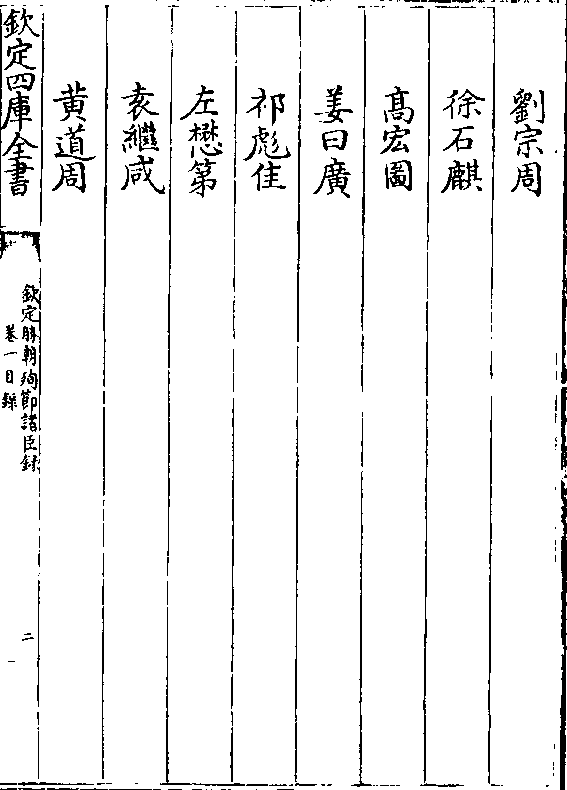 劉宗周
徐石麒
髙宏圖
姜曰廣
祁彪佳
左懋第
袁繼咸
黄道周
欽定四庫全書
欽定勝朝殉節諸臣録
卷一目録
二